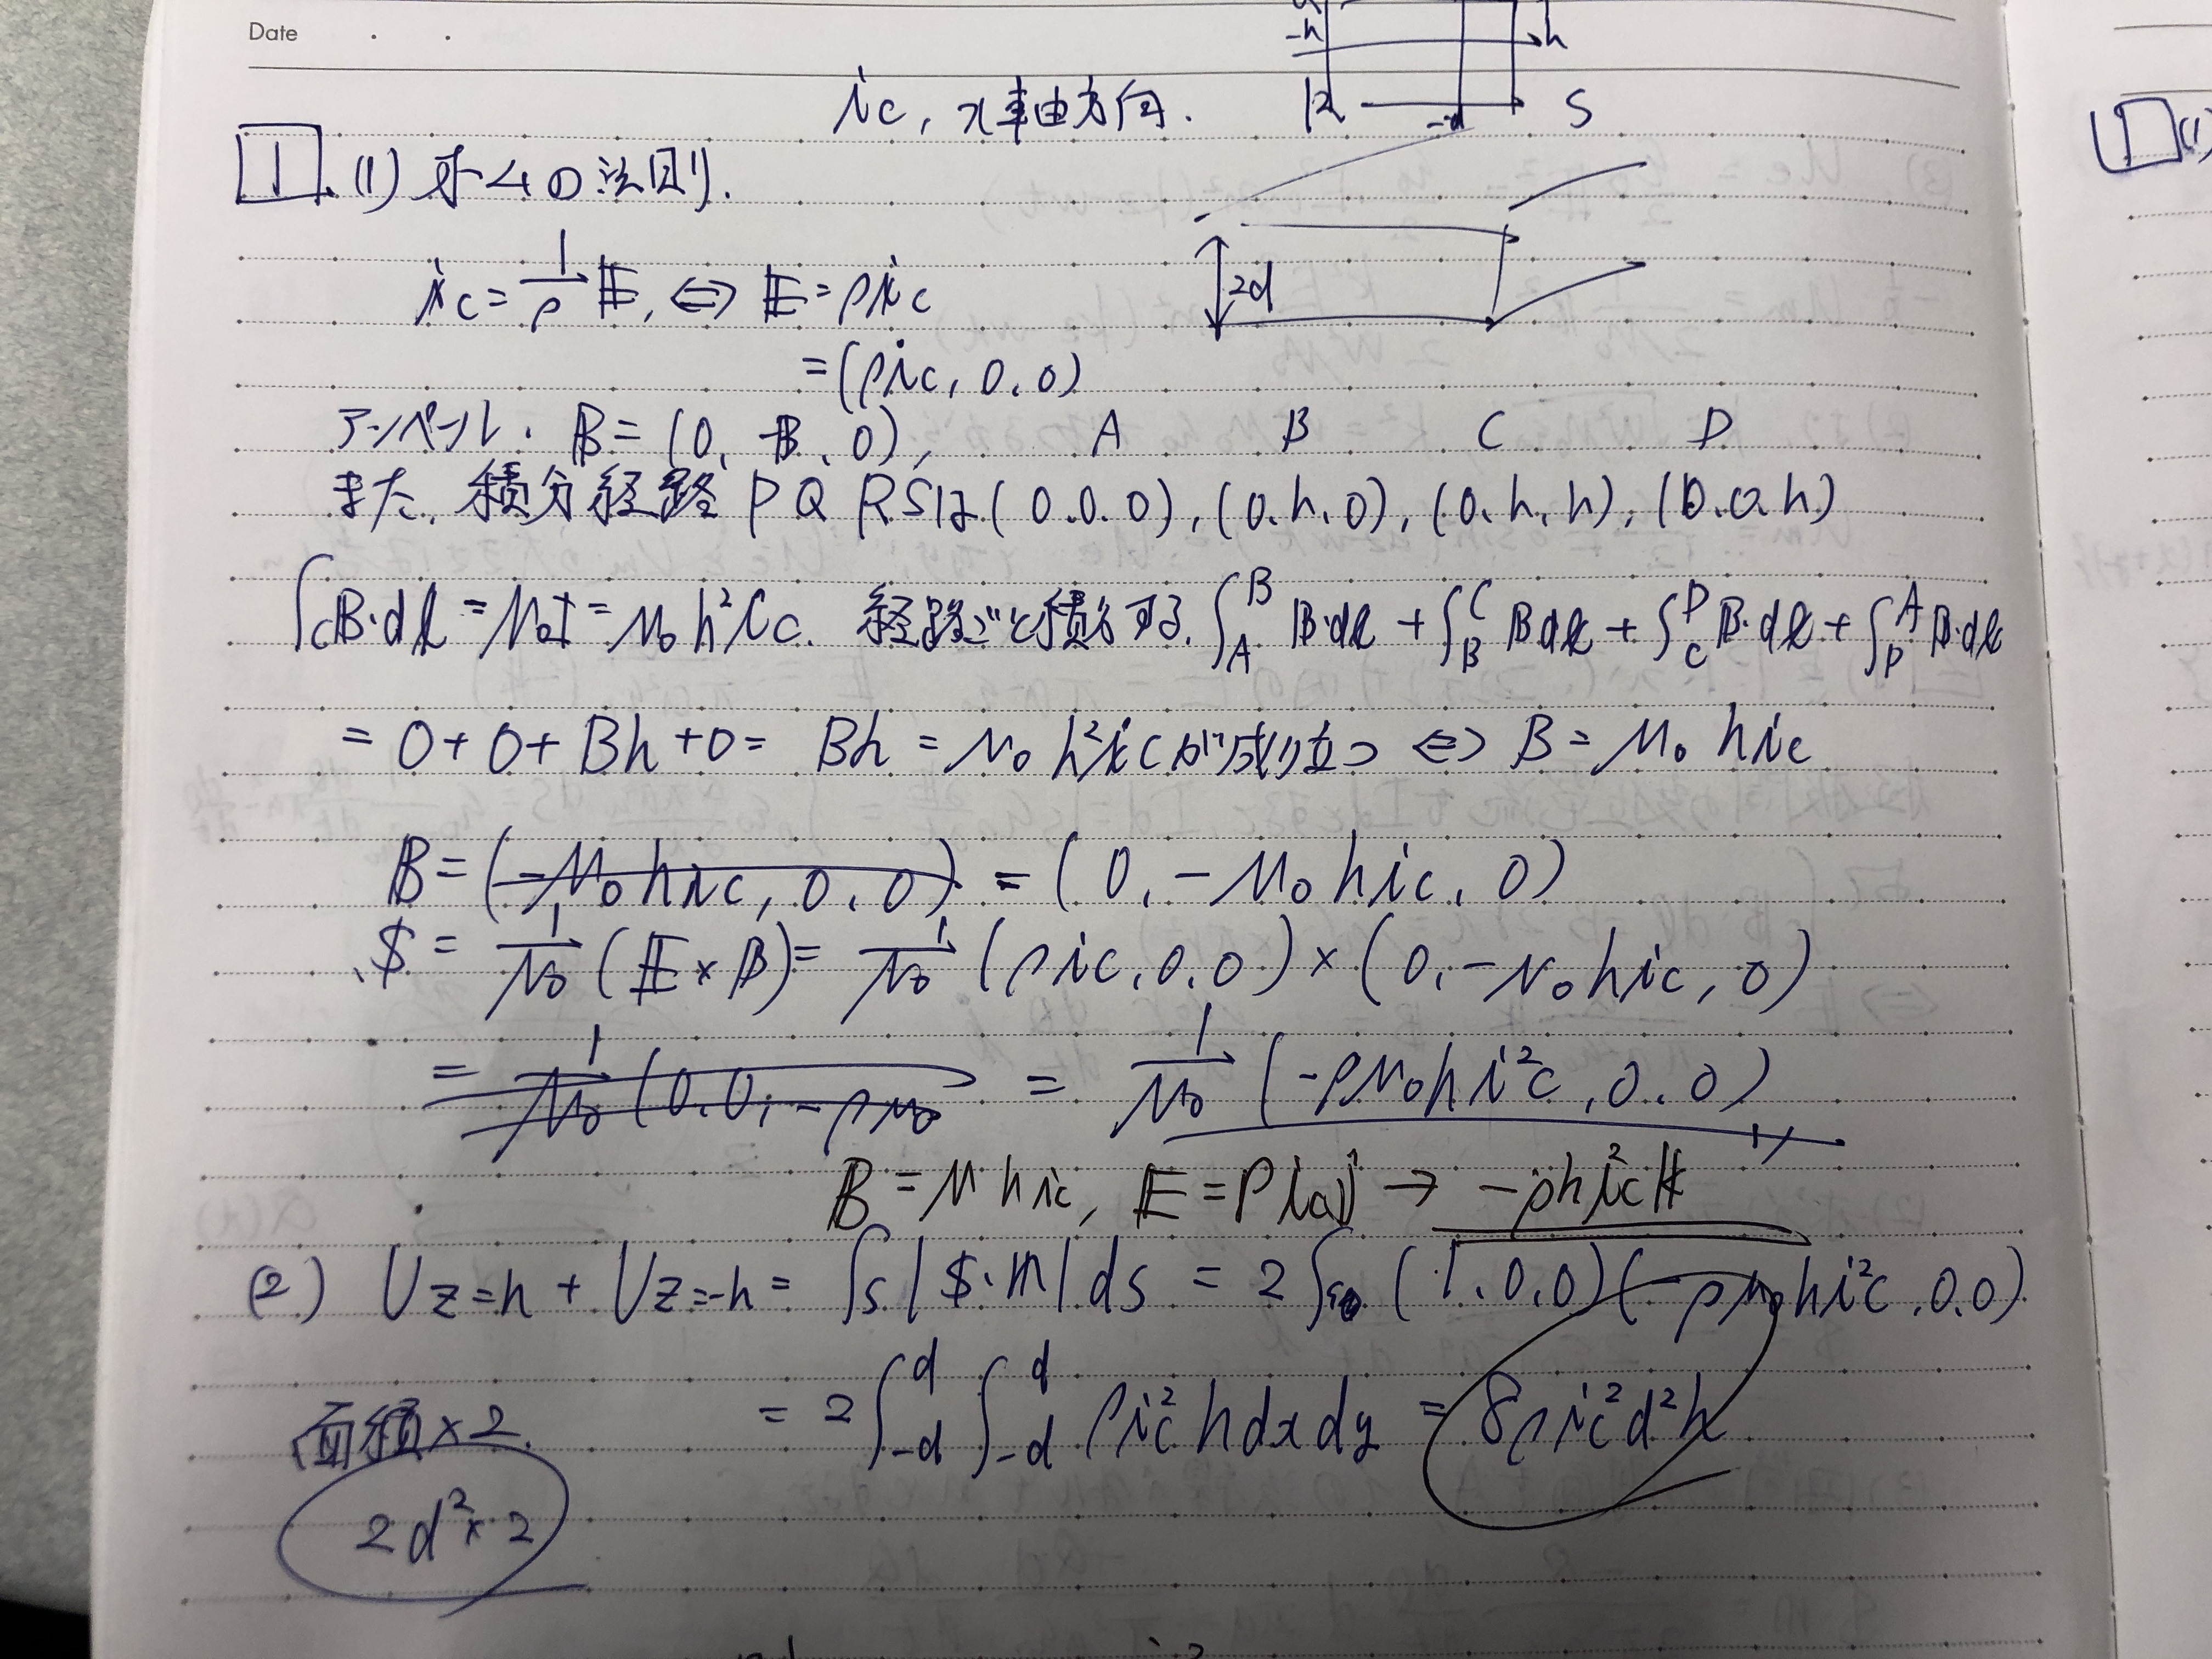 Date
-h h
ic, x軸方向.
R -d S
1. (1) オームの法則.
ic = 1/ρ E, ⇔ E = ρic
2d
= (ρic, 0.0)
アンペール. B = (0, -B, 0), A B C D
また, 積分経路 PQRSは(0.0.0), (0.h,0), (0.h,h), (0.0.h)
∫c B・dl = μ0I = μ0h²ic. 経路ごと積分する. ∫_A^B B・dl + ∫_B^C Bdl + ∫_C^D B・dl + ∫_D^A B・dl
= 0+0+Bh+0 = Bh = μ0h²icが成り立つ ⇔ B = μ0hic
B = (-μ0hic, 0, 0) = (0, -μ0hic, 0)
S = 1/μ0 (E×B) = 1/μ0 (ρic, 0.0) × (0, -μ0hic, 0)
= 1/μ0 (0.0, -ρμ0 = 1/μ0 (-ρμ0hi²c, 0.0)
B = μhic, → -ρhi²ck
(2) Uz=h + Uz=-h = ∫s |S・n| ds = 2∫s (1.0,0)(-ρμ0hi²c, 0.0)
= 2∫_-d^d ∫_-d^d ρic²hdxdy = 8ρic²d²h
面積×2.
2d²×2